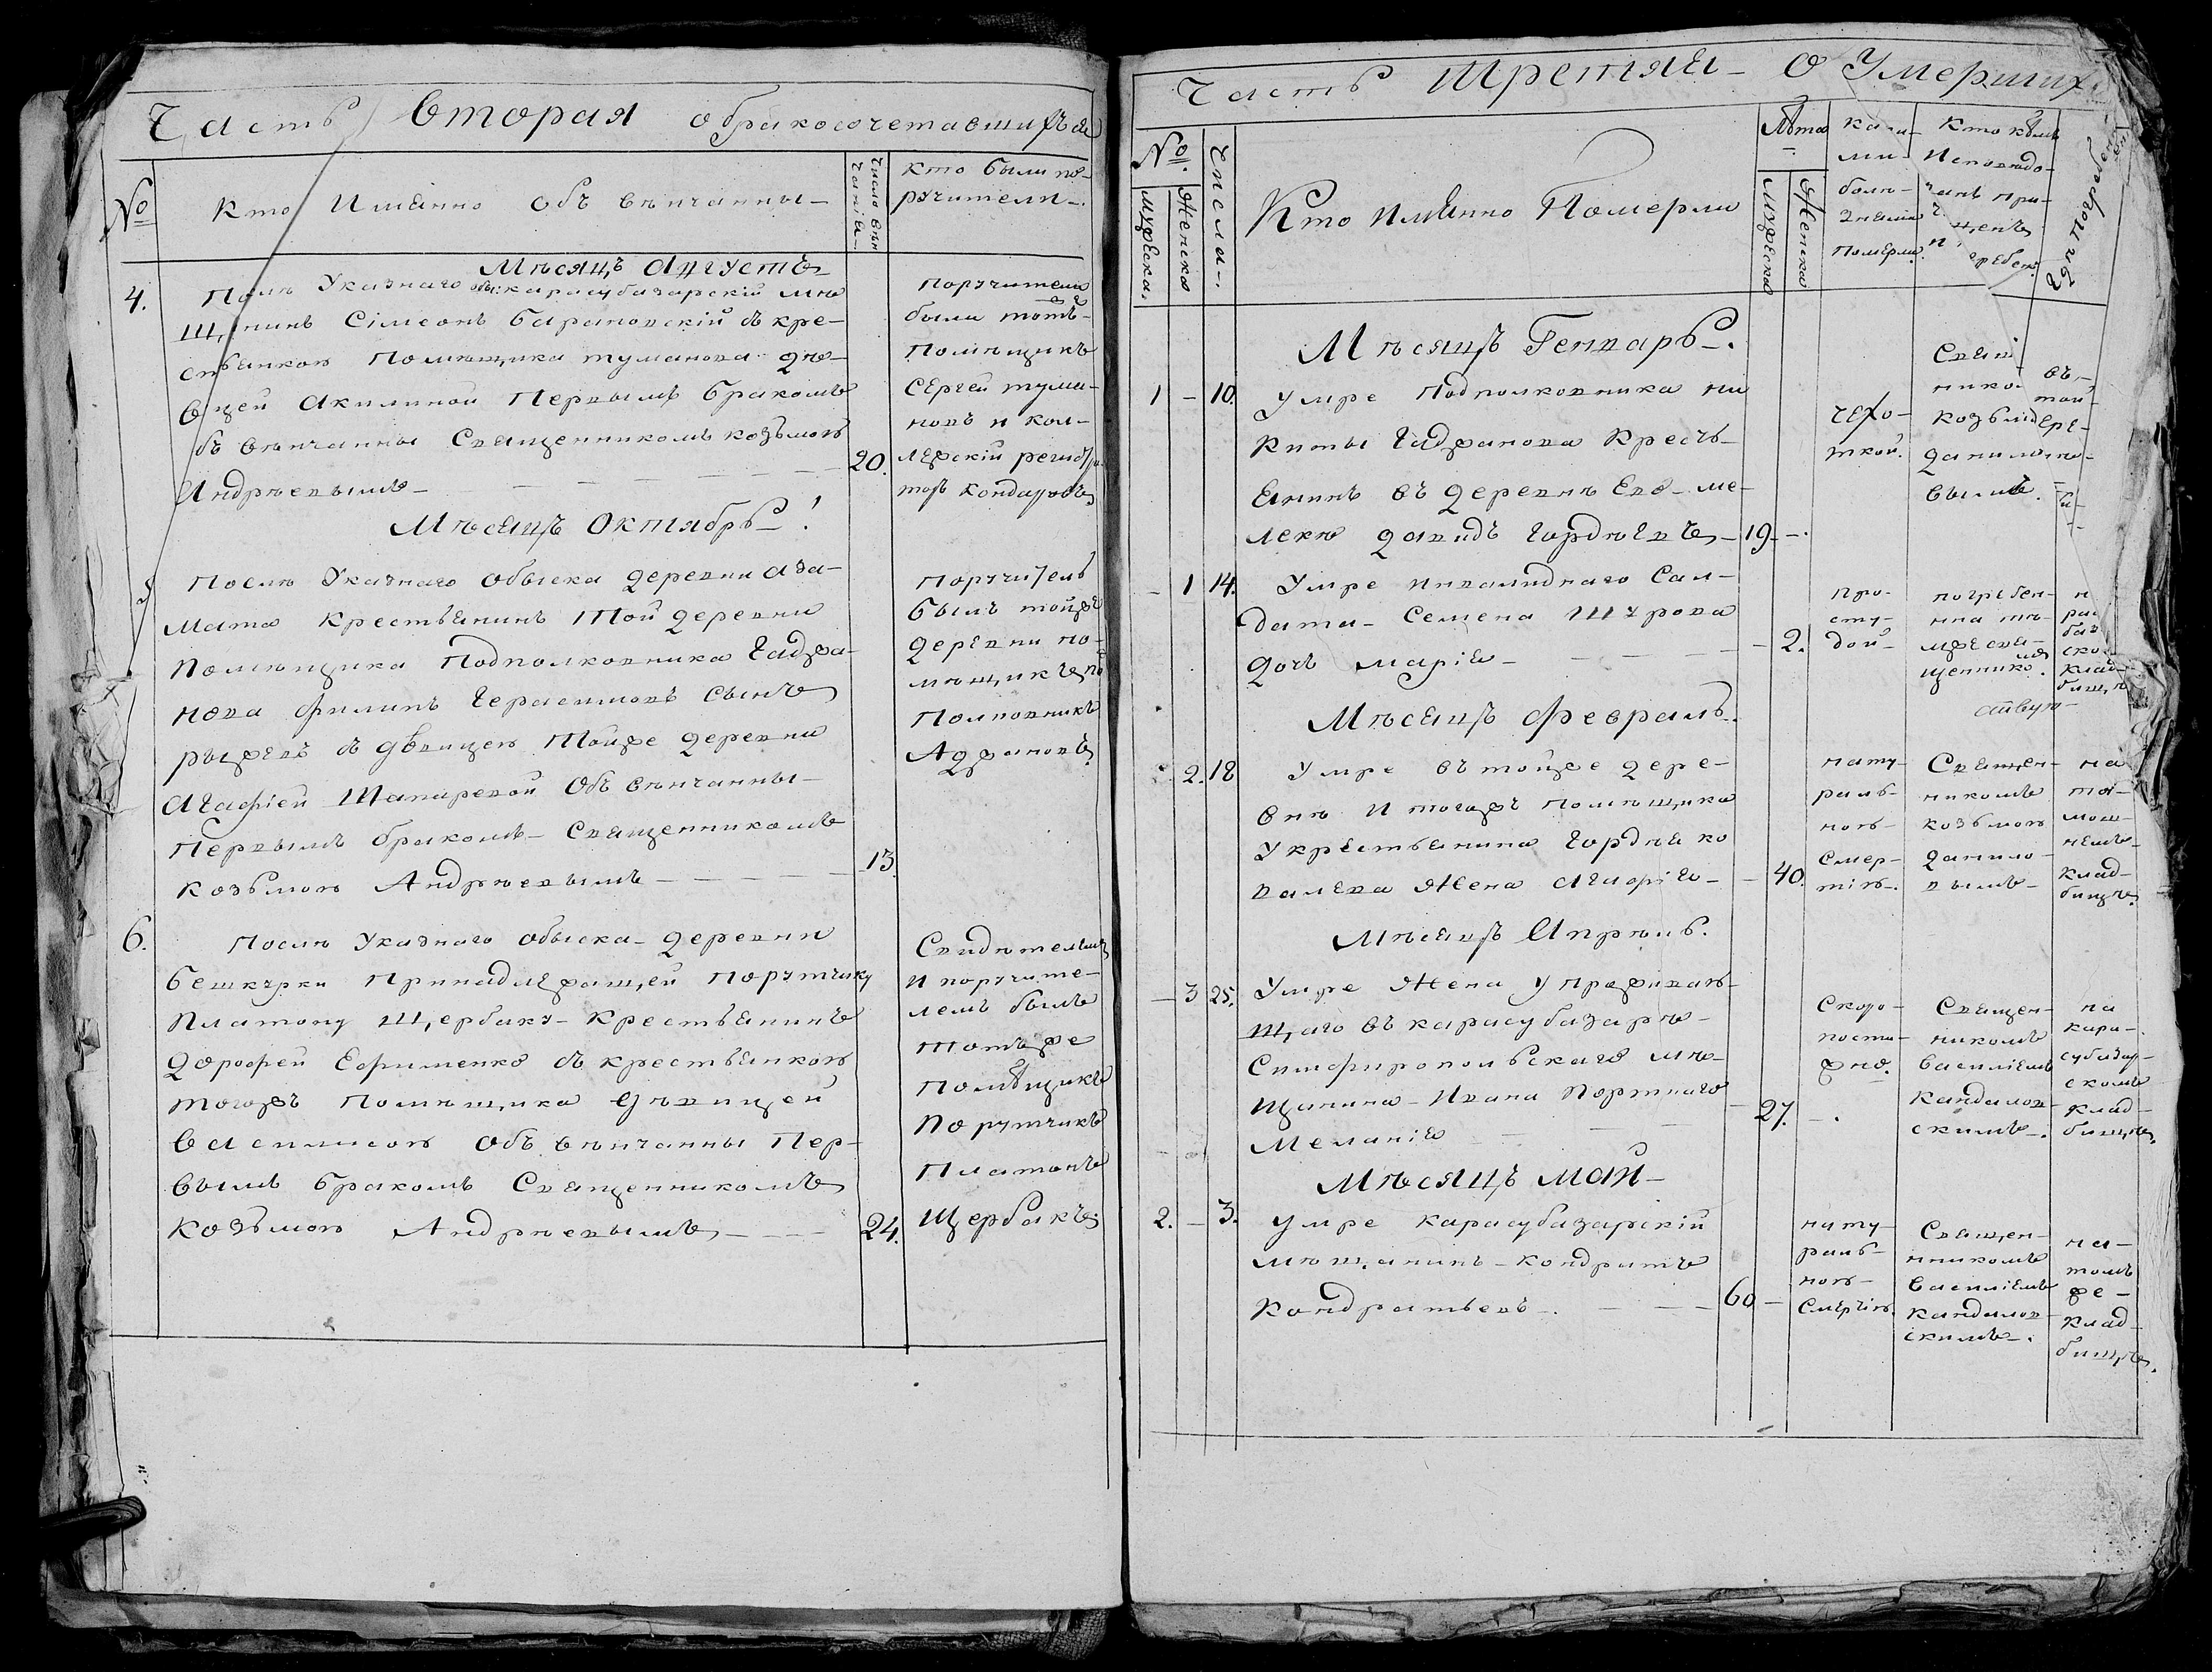 Часть Вторая о бракосочетавшихъся
№
Кто Имянно Объ венчанны
Число вен
чанія
Кто были по-
ручители
Месяцъ Августъ
4.
Указнаго обы: карасубазарскій ме
щанинъ Сімеонъ Барановскій съ кре-
стьянкою Помещика туманова де-
вицей Акилиной Первымъ бракомъ
объ венчанны Священникомъ козьмою
Андреевымъ
20.
Поручители
были тотъ
Помещикъ
Сергей тума-
новъ и кол-
лежскій регистра
торъ
Месяцъ Октябрь
5
После Указнаго обыска деревни Аза-
мата Крестьянинъ Той деревни
помещика Подполковника Гаджа-
нова филипъ Герасимовъ сынъ
рыжевъ съ девицею Тойже деревни
Агафіей Шапаревой Объ венчанны
Первымъ бракомъ Священникомъ
козьмою Андреевымъ
13.
Поручитель
былъ тойже
деревни по-
мещикъ по
Полковникъ
Аджановъ
6.
После Указнаго обыска деревни
бешкурки Принадлежащей Порутчику
Платону Щербаку Крестьянинъ
Дорофей Ефименко съ крестьянкою
тогожъ помещика девицей
Василисою Объ венчанны Пер-
вымъ бракомъ Священникомъ
козьмою Андреевымъ
24.
Свидетелемъ
и поручите-
лемъ былъ
тотъже
Помещикъ
Порутчикъ
Платонъ
Щербакъ
Часть Третяя О Умершихъ
№
Мужеска
Женска
Числа
Кто имянно Померли
Лета
Мужеска
Женска
Каки-
ми
боле-
знями
Померли
Кто ихъ
Исповедо-
валъ при-
Погребены
Месяцъ Генварь
1 — 10.
Умре Подполковника Ни
киты Гаджанова Кресть-
янинъ въ деревне Ево ме-
леке давидъ Гордеевъ
19
чехо-
ткой.
Козьмою
Данило-
вымъ
— 1 14.
Умре инвалиднаго Сал-
дата Семена Шурова
дочь Марія
2.
про-
сту-
дой
погребен-
на те-
мже свя-
щеннико
клад-
бищѣ
Месяцъ февраль
2. 18
Умре въ тойже дере-
вне и тогожъ помещика
Укрестьянина Гордея ко
валева Жена Агафія
40.
нату-
раль-
ною
Смер-
тію.
Священ-
никомъ
козьмою
данило-
вымъ
на
том-
мош-
немъ
клад-
бище
Месяцъ Апрель.
— 3 25.
Умре Жена Упроживаю-
щаго въ карасубазаре
Симфиропольскаго ме-
щанина Ивана Портнаго
Меланія
27.
Скоро-
пости-
жно.
Священ-
никомъ
Василіемъ
Кандалов-
скимъ
на
кара-
субазар-
скомъ
клад-
бищѣ
Месяцъ май
2. — 3.
Умре карасубазарскій
мещанинъ Кондратъ
Кондратьевъ
60
нату-
раль-
ною
Смертію.
Священ-
нникомъ
Василіемъ
Кандалов-
скимъ
на
томъ
же
клад-
бищѣ